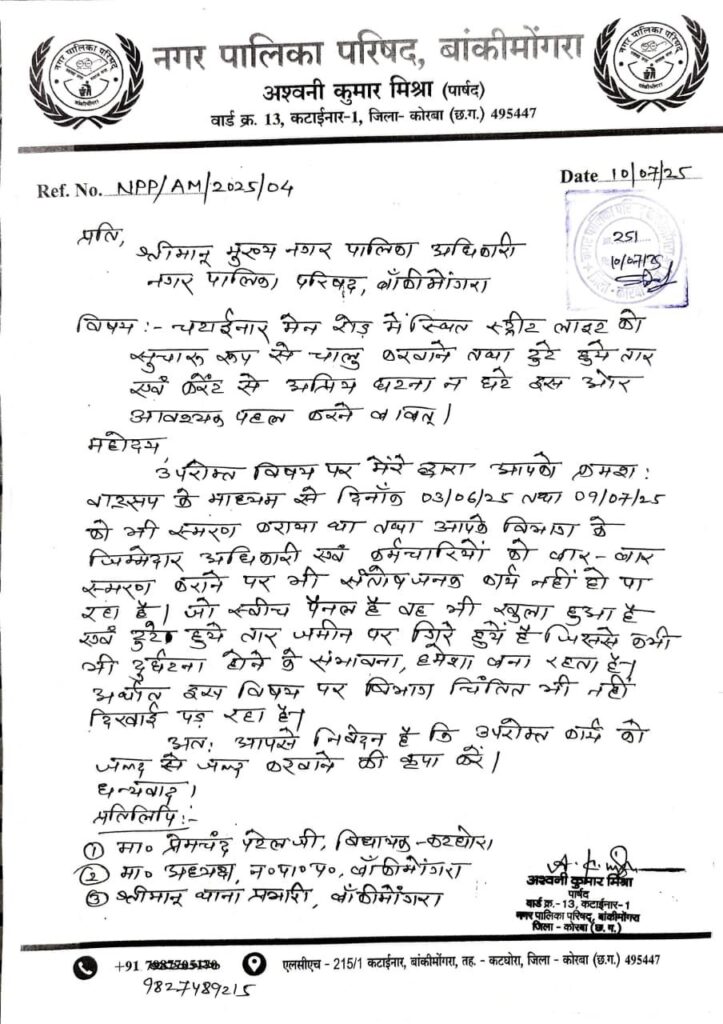 नगर पालिका परिषद, बांकीमोंगरा
अश्वनी कुमार मिश्रा (पार्षद)
वार्ड क्र. 13, कटाईनार-1, जिला- कोरबा (छ.ग.) 495447
नगर पालिका परिषद्
बांकीमोंगरा
नगर पालिका परिषद्
बांकीमोंगरा
Ref. No. NPP/AM/2025/04
Date 10/07/25
251
10/07/25
प्रति,
श्रीमान् मुख्य नगर पालिका अधिकारी
नगर पालिका परिषद, बाँकीमोंगरा
विषय :- कटाईनार मेन रोड़ में स्थित स्ट्रीट लाइट को
सुचारू रूप से चालु करवाने तथा टुटे हुये तार
एवं करेंट से अप्रिय घटना न घटे इस ओर
आवश्यक पहल करने बाबत् ।
महोदय,
उपरोक्त विषय पर मेरे द्वारा आपको क्रमश:
वाट्सप के माध्यम से दिनाँक 03/06/25 तथा 09/07/25
को भी स्मरण कराया था तथा आपके विभाग के
जिम्मेदार अधिकारी एवं कर्मचारियों को बार-बार
स्मरण कराने पर भी संतोषजनक कार्य नहीं हो पा
रहा है। जो स्वीच पैनल है वह भी खुला हुआ है
एवं टुटे हुये तार जमीन पर गिरे हुये है जिससे कभी
भी दुर्घटना होने के संभावना, हमेशा बना रहता है।
अर्थात इस विषय पर विभाग चिंतित भी नहीं
दिखाई पड़ रहा है।
अत: आपसे निवेदन है कि उपरोक्त कार्य को
जल्द से जल्द करवाने की कृपा करें।
धन्यवाद।
प्रतिलिपि :-
① मा० प्रेमचंद पटेल जी, विधायक-कटघोरा
② मा० अध्यक्ष, न०पा०प०, बाँकीमोंगरा
③ श्रीमान् थाना प्रभारी, बाँकीमोंगरा
अश्वनी कुमार मिश्रा
पार्षद
वार्ड क्र.-13, कटाईनार-1
नगर पालिका परिषद्, बांकीमोंगरा
जिला - कोरबा (छ.ग.)
+91
9827489215
एलसीएच - 215/1 कटाईनार, बांकीमोंगरा, तह. - कटघोरा, जिला - कोरबा (छ.ग.) 495447